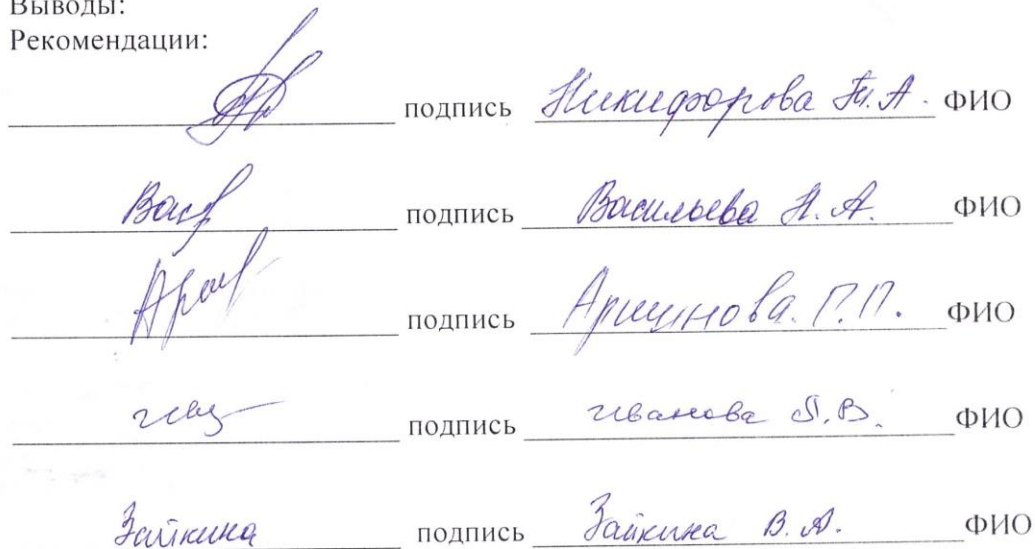 Выводы:
Рекомендации:
подпись Никифорова Т.А. ФИО
Вас подпись Васильева Н.А. ФИО
подпись Аршинова Г.П. ФИО
подпись Иванова В. ФИО
Зайкина подпись Зайкина В.А. ФИО